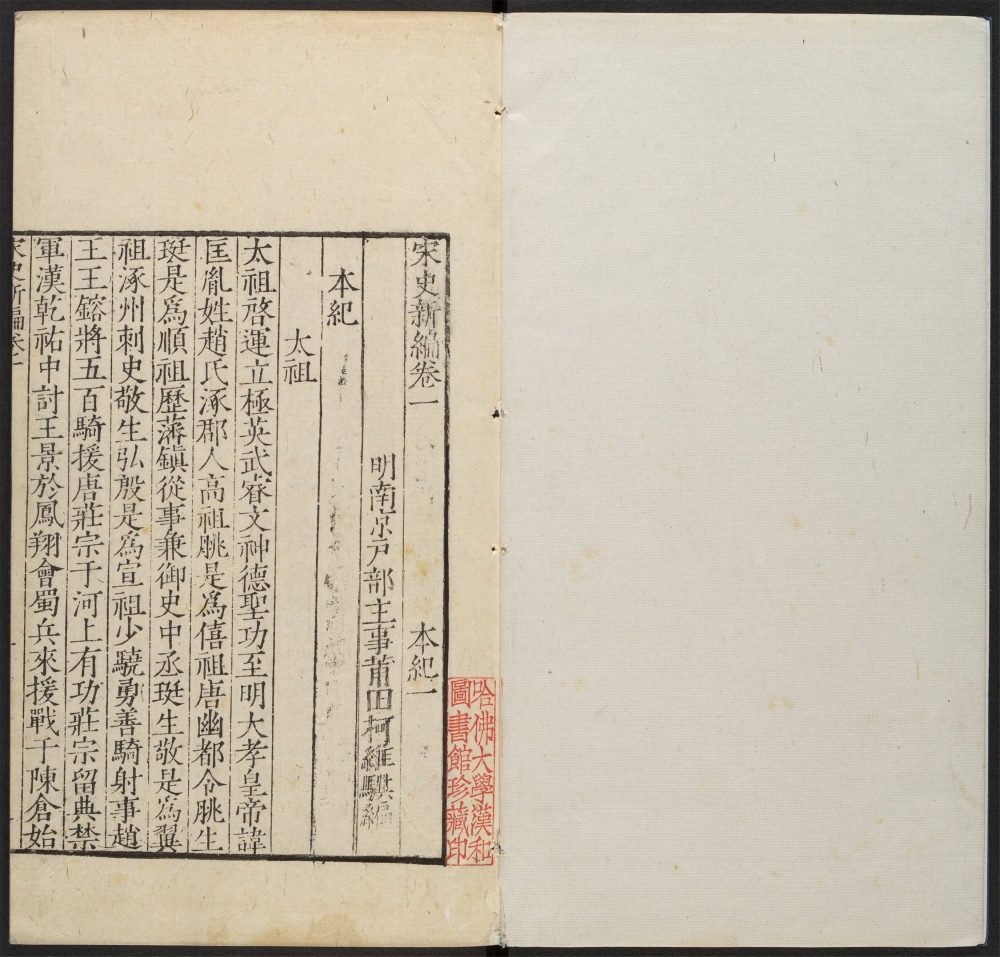 宋史新編卷一　本紀一
明南京戶部主事莆田柯維騏編
本紀
太祖
太祖啓運立極英武睿文神德聖功至明大孝皇帝諱
匡胤姓趙氏涿郡人高祖朓是爲僖祖唐幽都令朓生
珽是爲順祖歷藩鎮從事兼御史中丞珽生敬是爲翼
祖涿州刺史敬生弘殷是爲宣祖少驍勇善騎射事趙
王王鎔將五百騎援唐莊宗于河上有功莊宗留典禁
軍漢乾祐中討王景於鳳翔會蜀兵來援戰于陳倉始
宋史新編卷一
哈佛大學漢和
圖書館珍藏印